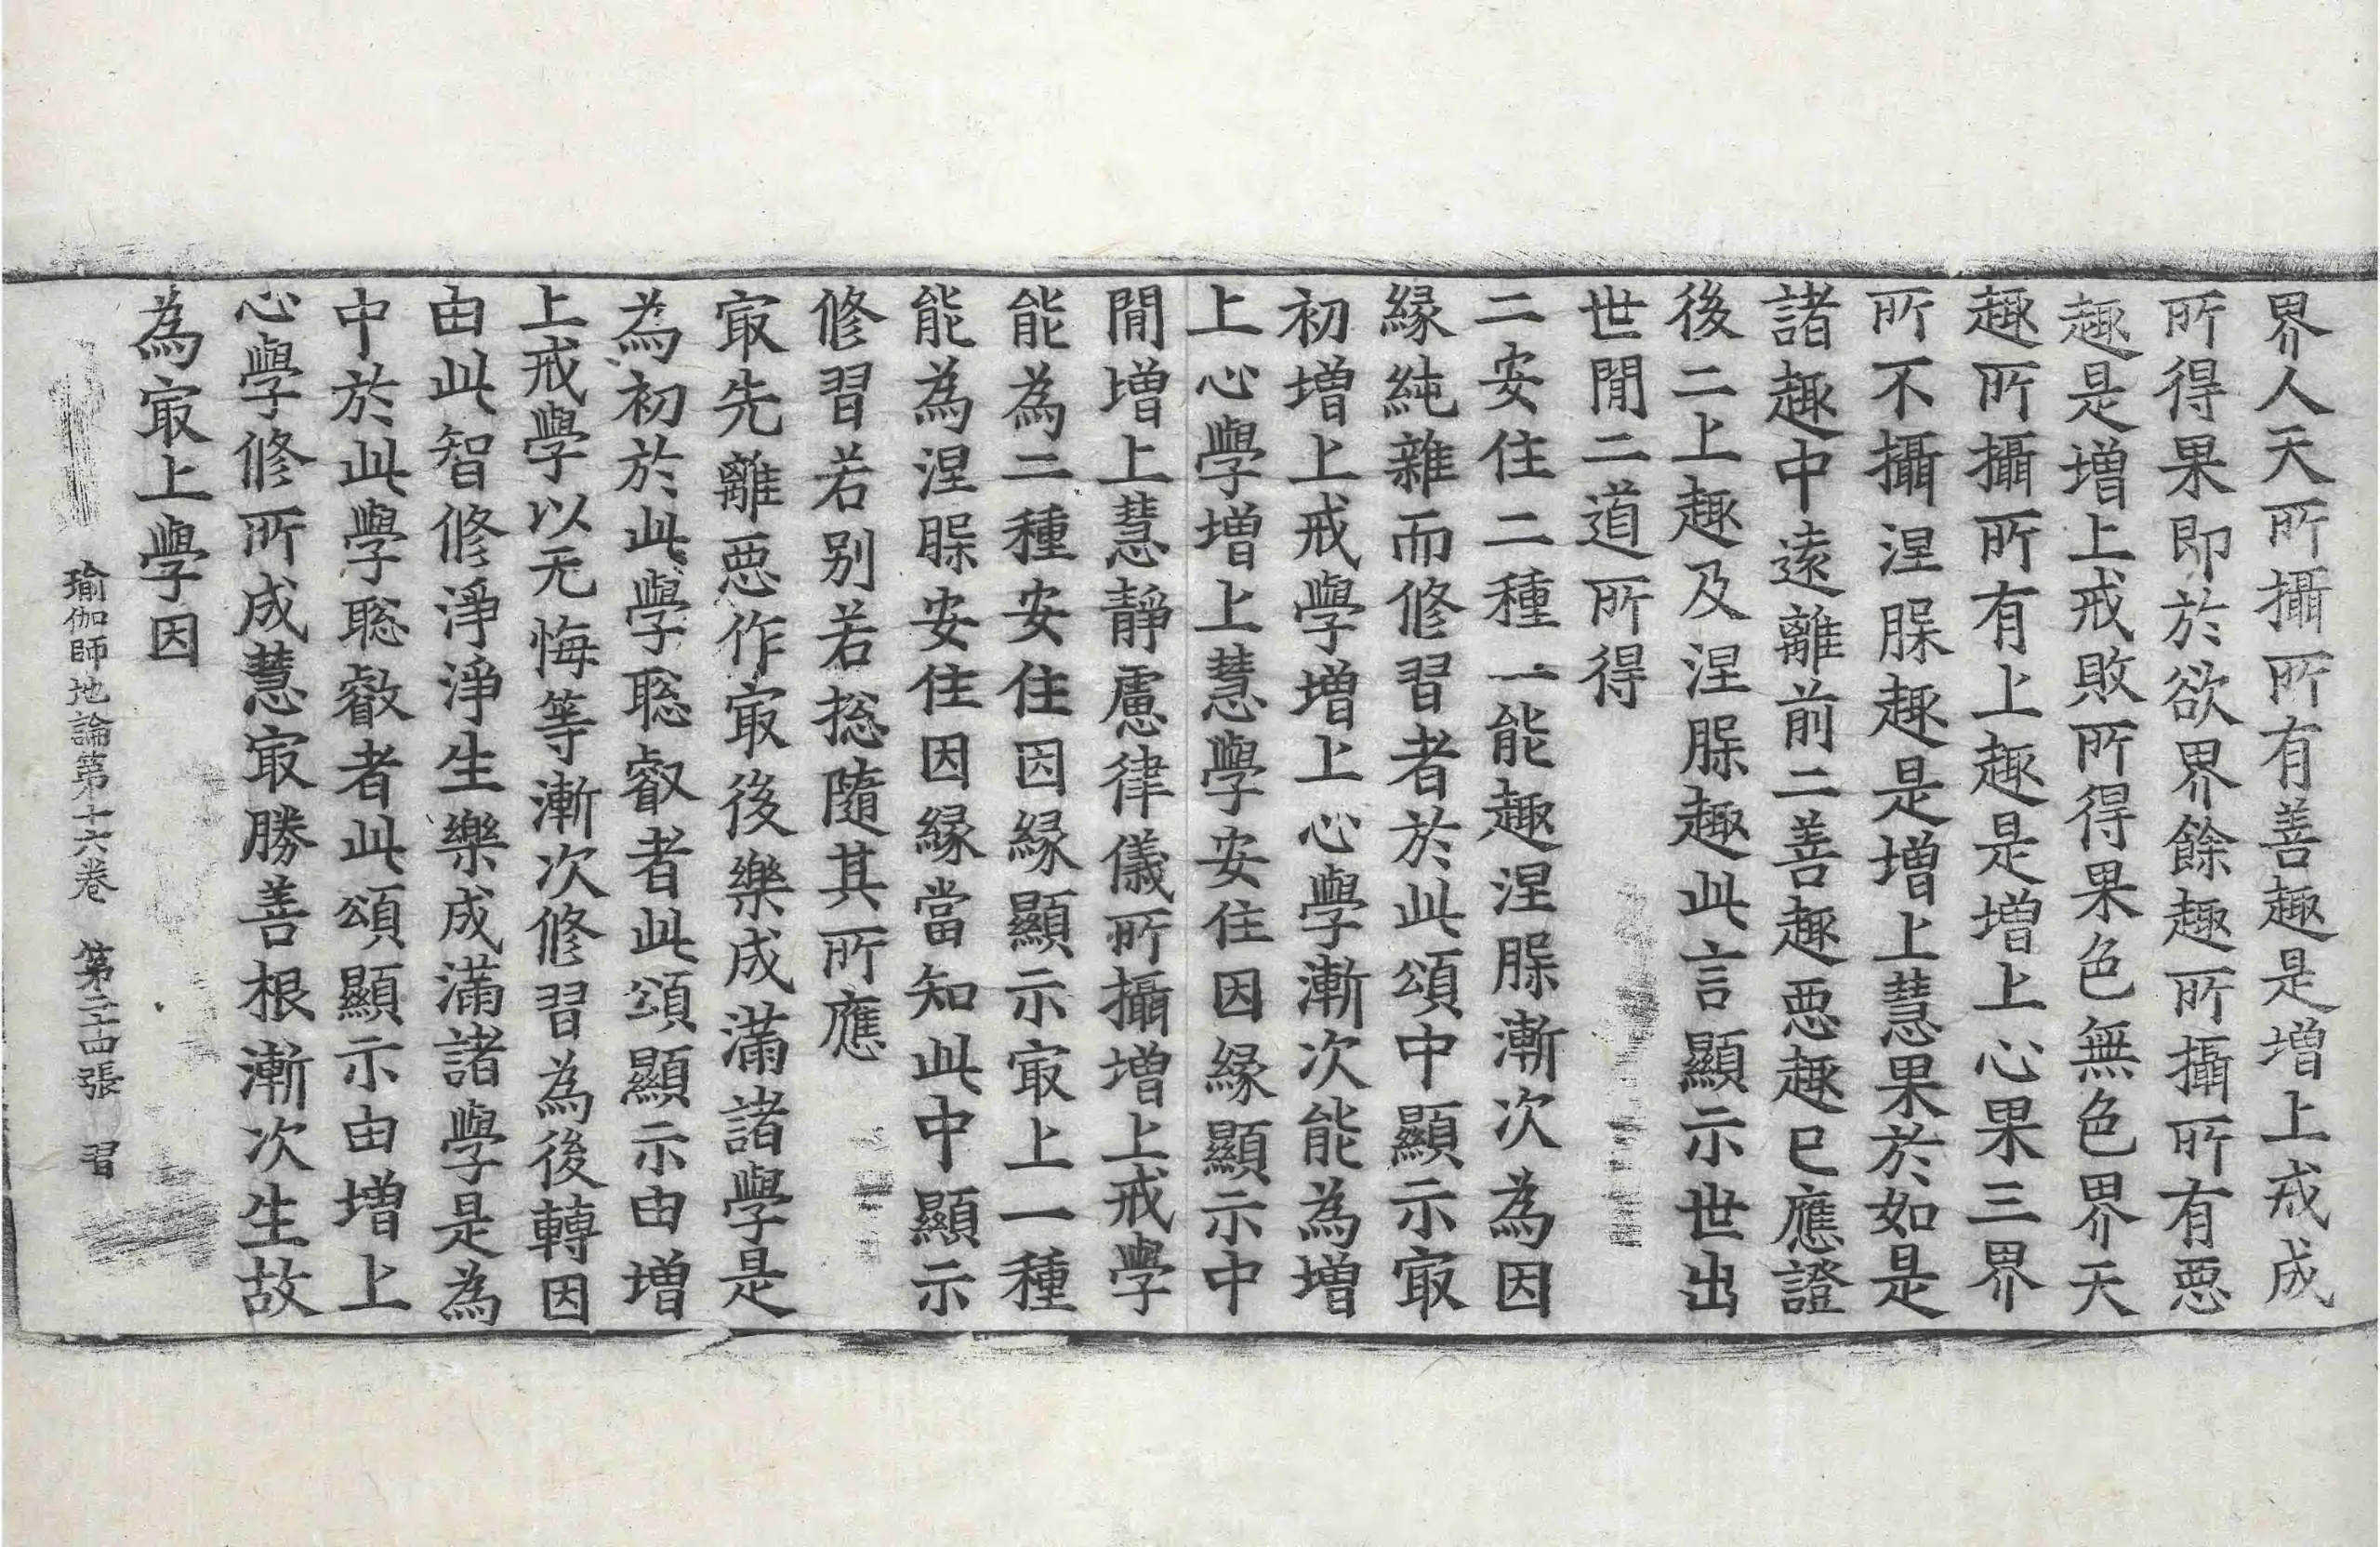 界人天所攝所有善趣是增上戒成
所得果即於欲界餘趣所攝所有惡
趣是增上戒敗所得果色無色界天
趣所攝所有上趣是增上心果三界
所不攝涅槃趣是增上慧果於如是
諸趣中遠離前二善趣惡趣已應證
後二上趣及涅槃趣此言顯示世出
世閒二道所得
二安住二種一能趣涅槃漸次為因
緣純雜而修習者於此頌中顯示冣
初增上戒學增上心學漸次能為增
上心學增上慧學安住因緣顯示中
閒增上慧靜慮律儀所攝增上戒學
能為二種安住因緣顯示冣上一種
能為涅槃安住因緣當知此中顯示
修習若別若捴隨其所應
冣先離惡作冣後樂成滿諸學是
為初於此學聡叡者此頌顯示由增
上戒學以无悔等漸次修習為後轉因
由此智修淨淨生樂成滿諸學是為
中於此學聡叡者此頌顯示由增上
心學修所成慧冣勝善根漸次生故
為冣上學因
瑜伽師地論第十六卷　第二十四張　習